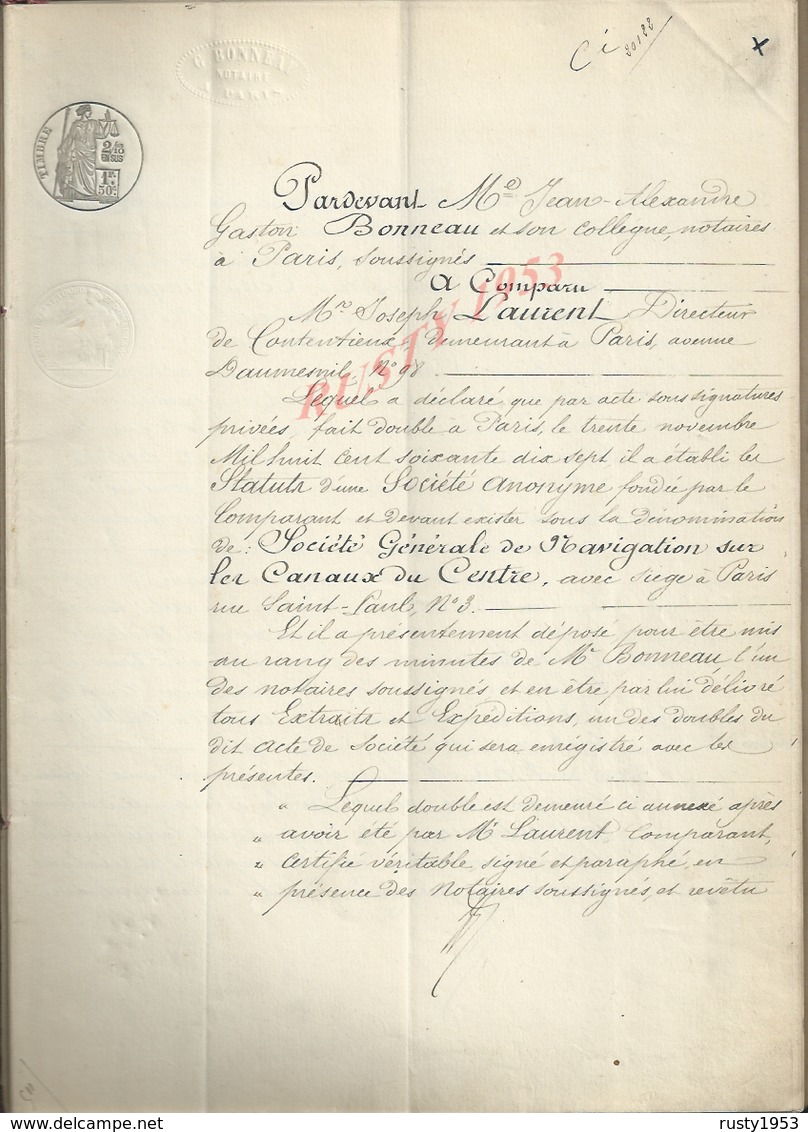 G. BONNEAU
NOTAIRE
PARIS
Ci
TIMBRE
2/10
EN SUS
1F.
50C.
Pardevant Me Jean-Alexandre
Gaston Bonneau et son collègue, notaires
à Paris, soussignés
A Comparu
Mr Joseph Laurent, Directeur
de Contentieux, demeurant à Paris, avenue
Daumesnil, No 98
Lequel a déclaré que par acte sous signatures
privées, fait double à Paris, le trente novembre
Mil huit cent soixante dix sept il a établi les
Statuts d'une Société anonyme fondée par le
Comparant et devant exister sous la dénomination
de: Société Générale de Navigation sur
les Canaux du Centre, avec siège à Paris
rue Saint-Paul, No 3.
Et il a présentement déposé pour être mis
au rang des minutes de Me Bonneau l'un
des notaires soussignés et en être par lui délivré
tous Extraits et Expéditions, un des doubles du
dit acte de Société qui sera enregistré avec les
présentes.
" Lequel double est demeuré ci annexé après
" avoir été par Mr Laurent, Comparant,
" certifié véritable signé et paraphé, en
" présence des Notaires soussignés, et revêtu
RUSTY 1953
delcampe.net
rusty1953